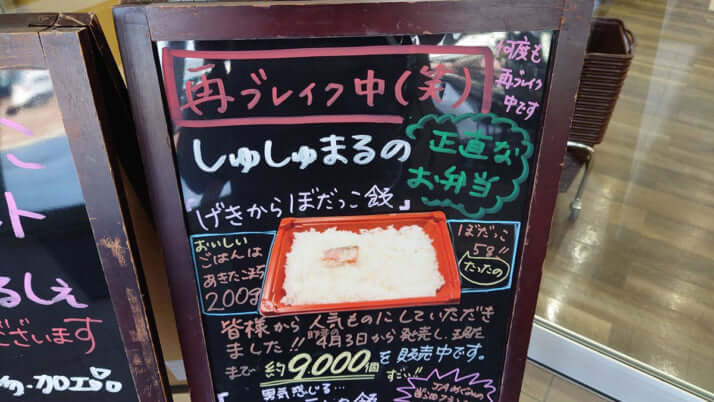 再ブレイク中(笑)
何度も
再ブレイク
中です
しゅしゅまるの
正直な
お弁当
「げきからぼだっこ飯」
おいしい
ごはんは
あきたこまち
200g
ぼだっこ
5g!!
たったの
皆様から人気ものにしていただき
ました!! 4月3日から発売し、現在
まで約9,000個を販売中です。
すごい!!
男気感じる…
JAめぐみの
ト
るしぇ
ございます
加工品